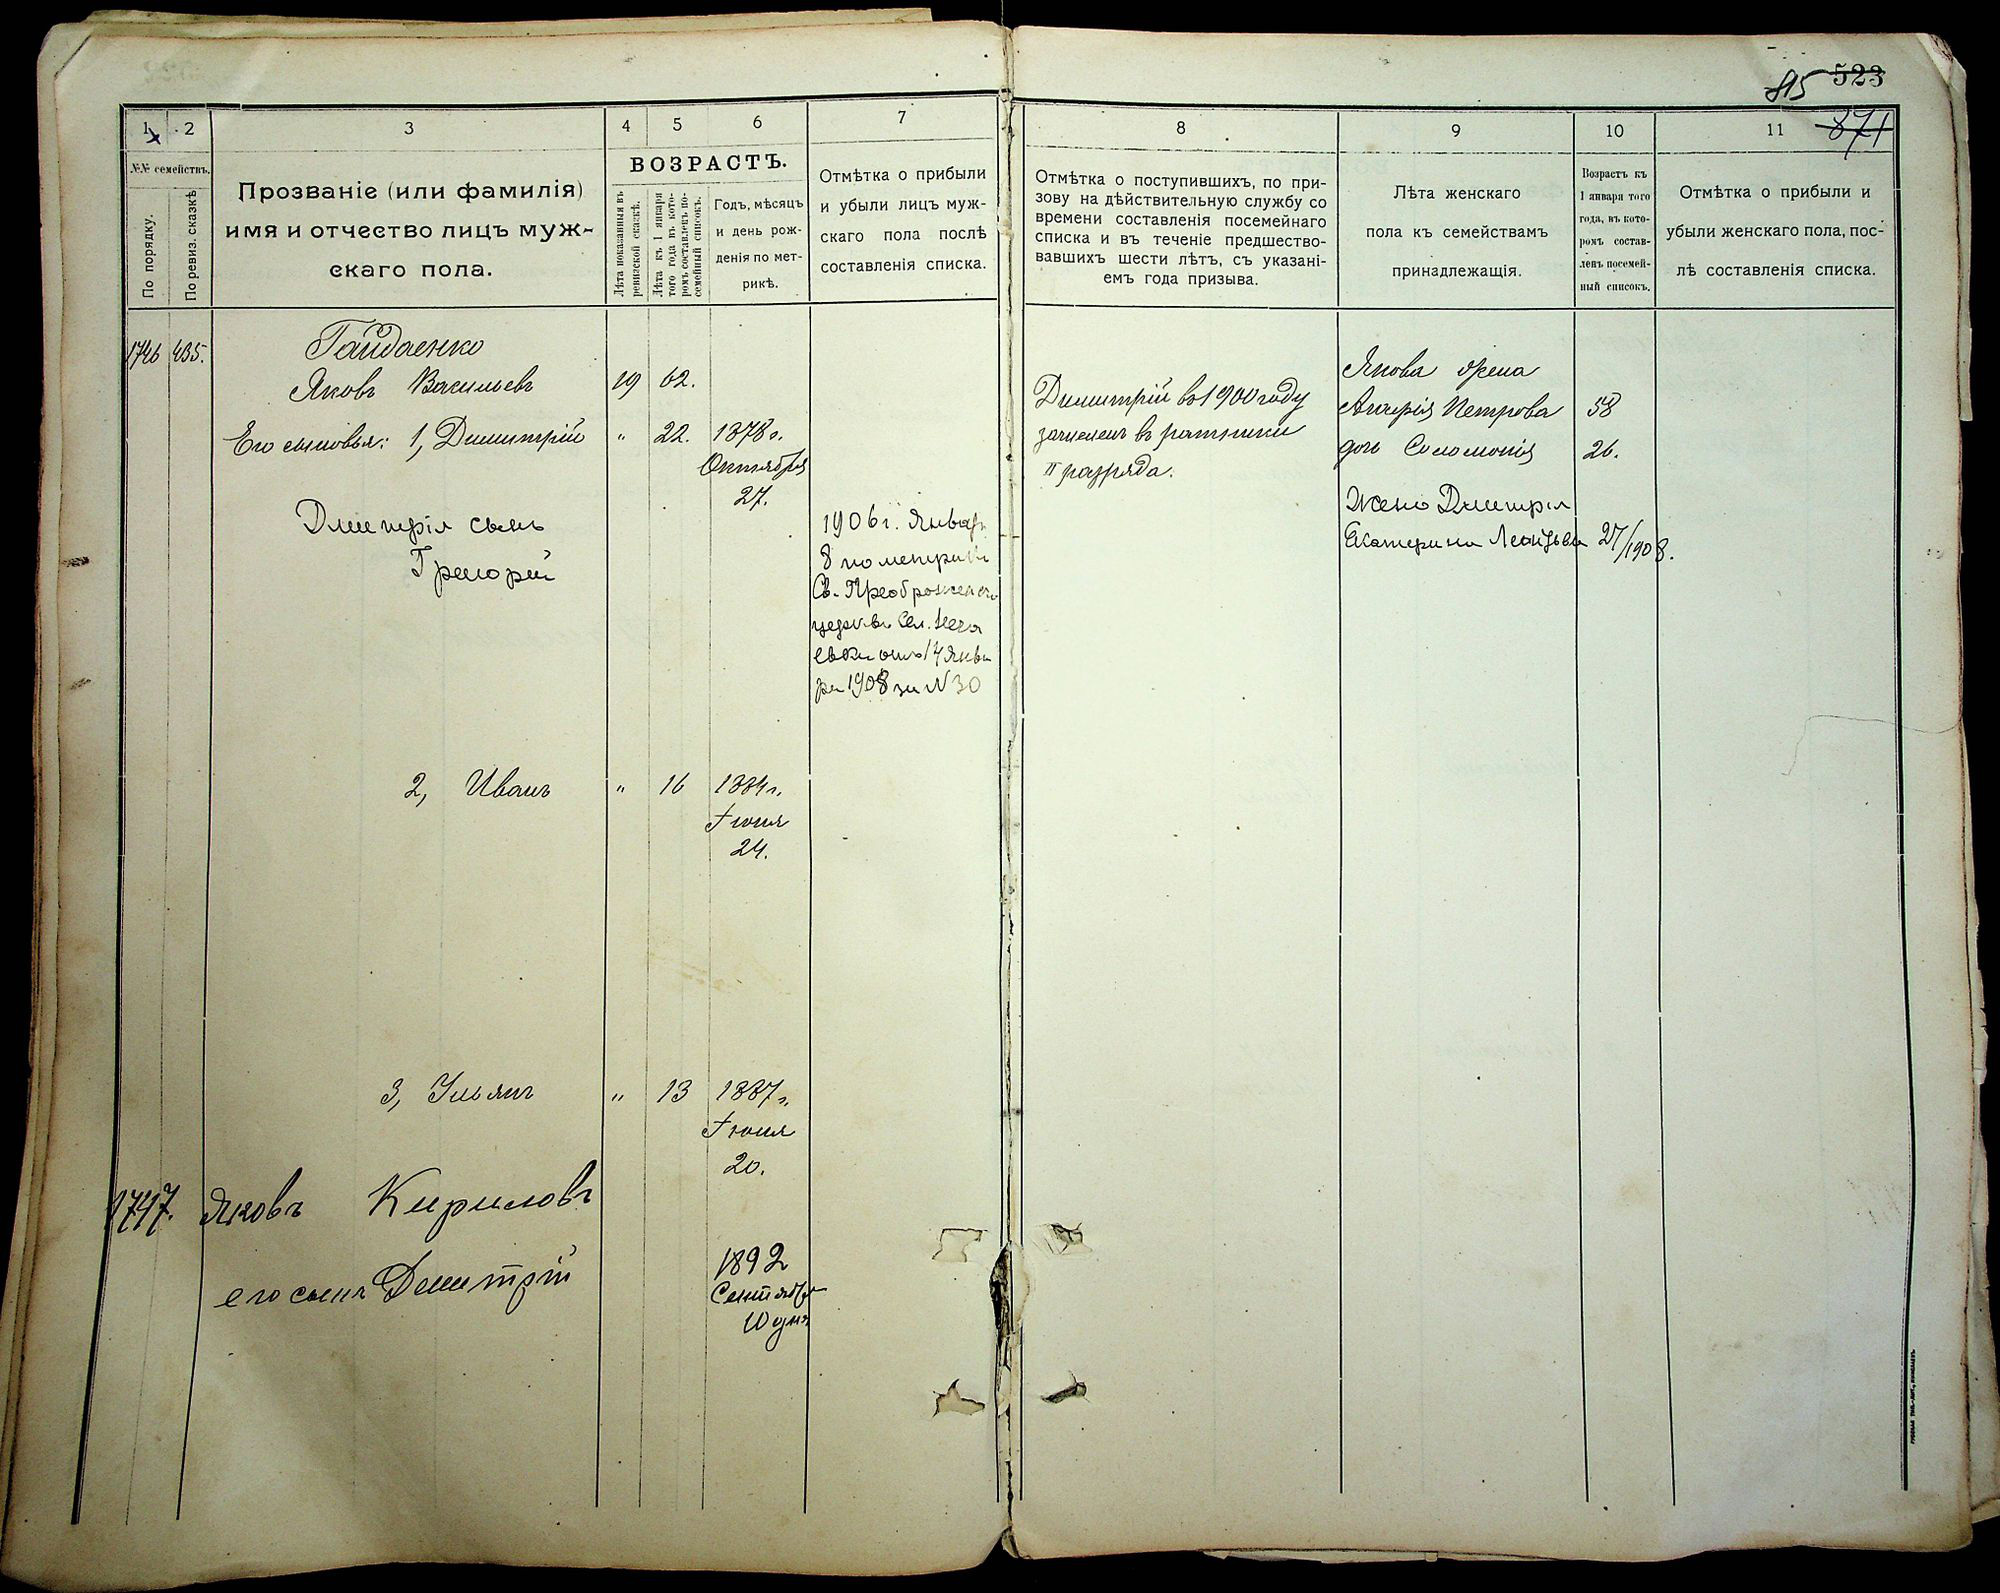 815 523
871
1 2 3 4 5 6 7
№№ семействъ.
По порядку.
По ревиз. сказкѣ
Прозваніе (или фамилія)
имя и отчество лицъ муж-
скаго пола.
ВОЗРАСТЪ.
Лѣта показанныя въ
ревизской сказкѣ.
Лѣта къ 1 января
того года въ кото-
ромъ составленъ по-
семейный списокъ.
Годъ, мѣсяцъ
и день рож-
денія по мет-
рикѣ.
Отмѣтка о прибыли
и убыли лицъ муж-
скаго пола послѣ
составленія списка.
1746 435.
Гайдаенко
Яковъ Васильевъ 19 62.
Его сыновья: 1, Димитрій " 22. 1878 г.
Октября
27.
Дмитрія сынъ
Григорій
1906 г. Январ
8 по метрики
Св. Преображенск
церкви Сел.
от 14 Янва
ря 1908 за N 30
2, Иванъ " 16 1884 г.
Іюня
24.
3, Ульянъ " 13 1887 г.
Іюня
20.
1747. Яковъ Кириловъ
его сынъ Дмитрій 1892
Сентября
10 дня
8 9 10 11
Отмѣтка о поступившихъ, по при-
зову на дѣйствительную службу со
времени составленія посемейнаго
списка и въ теченіе предшество-
вавшихъ шести лѣтъ, съ указані-
емъ года призыва.
Лѣта женскаго
пола къ семействамъ
принадлежащія.
Возрастъ къ
1 января того
года, въ кото-
ромъ состав-
ленъ посемей-
ный списокъ.
Отмѣтка о прибыли и
убыли женскаго пола, пос-
лѣ составленія списка.
Димитрій въ 1900 году
зачисленъ въ ратники
II разряда.
Якова жена
Агафія Петрова 58
дочь Соломонія 26.
Жена Дмитрія
Екатерина Леонтьева 27/1908.